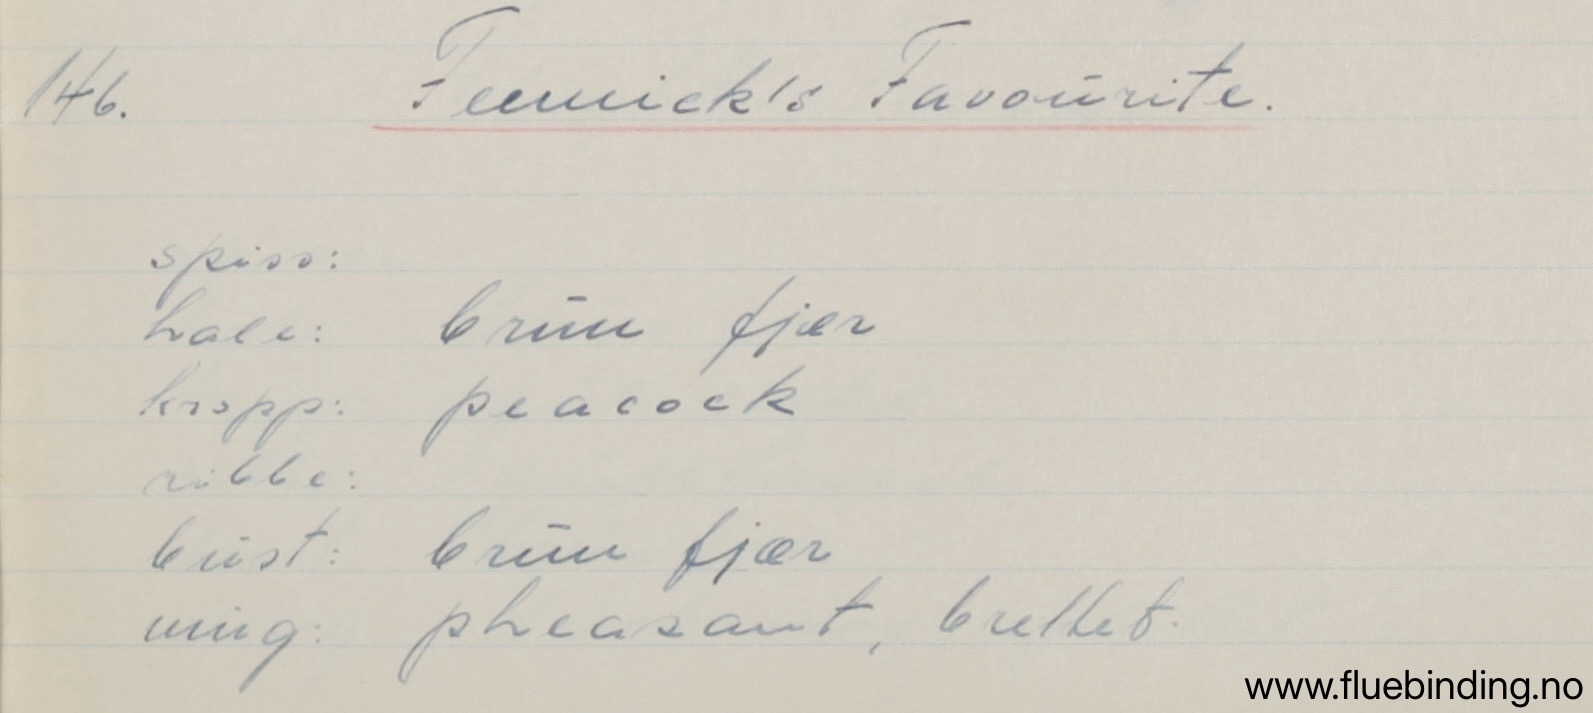 146. Fenwick's Favourite.
spiss:
hale: brun fjær
kropp: peacock
ribbe:
bust: brun fjær
ving: pheasant, brettet.
www.fluebinding.no